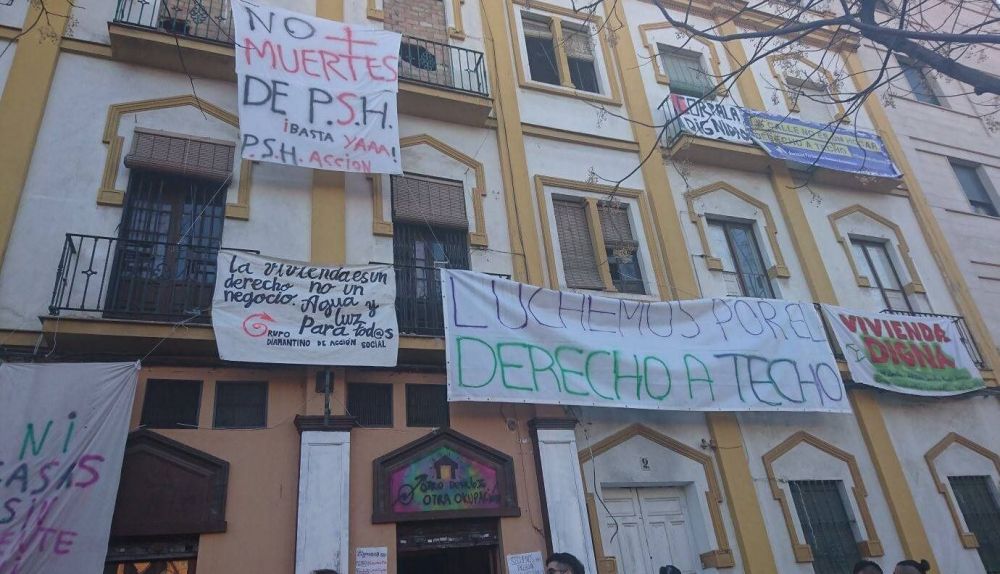 NO +
MUERTES
DE P.S.H.
¡BASTA YAAA!
P.S.H. ACCION
CORRALA
DIGNIDAD
DERECHO A TECHO
La vivienda es un
derecho no un
negocio. Agua y
luz
Para tod@s
GRUPO
DIAMANTINO DE ACCION SOCIAL
LUCHEMOS POR EL
DERECHO A TECHO
VIVIENDA
DIGNA
NI
CASAS
SIN
GENTE
OTRO
OTRA OKUPACIÓN
2